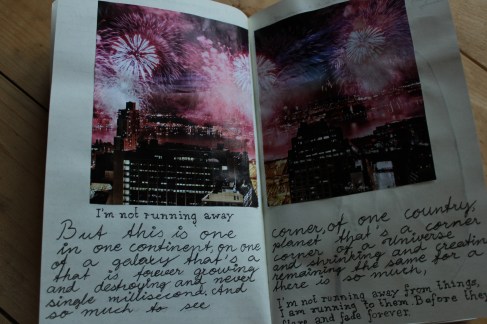 I'm not running away
But this is one corner, of one country,
in one continent, on one planet that's a corner
of a galaxy that's a corner of a universe
that is forever growing and shrinking and creating
and destroying and never remaining the same for a
single millisecond. And there is so much,
so much to see
I'm not running away from things,
I am running to them. Before they
flare and fade forever.